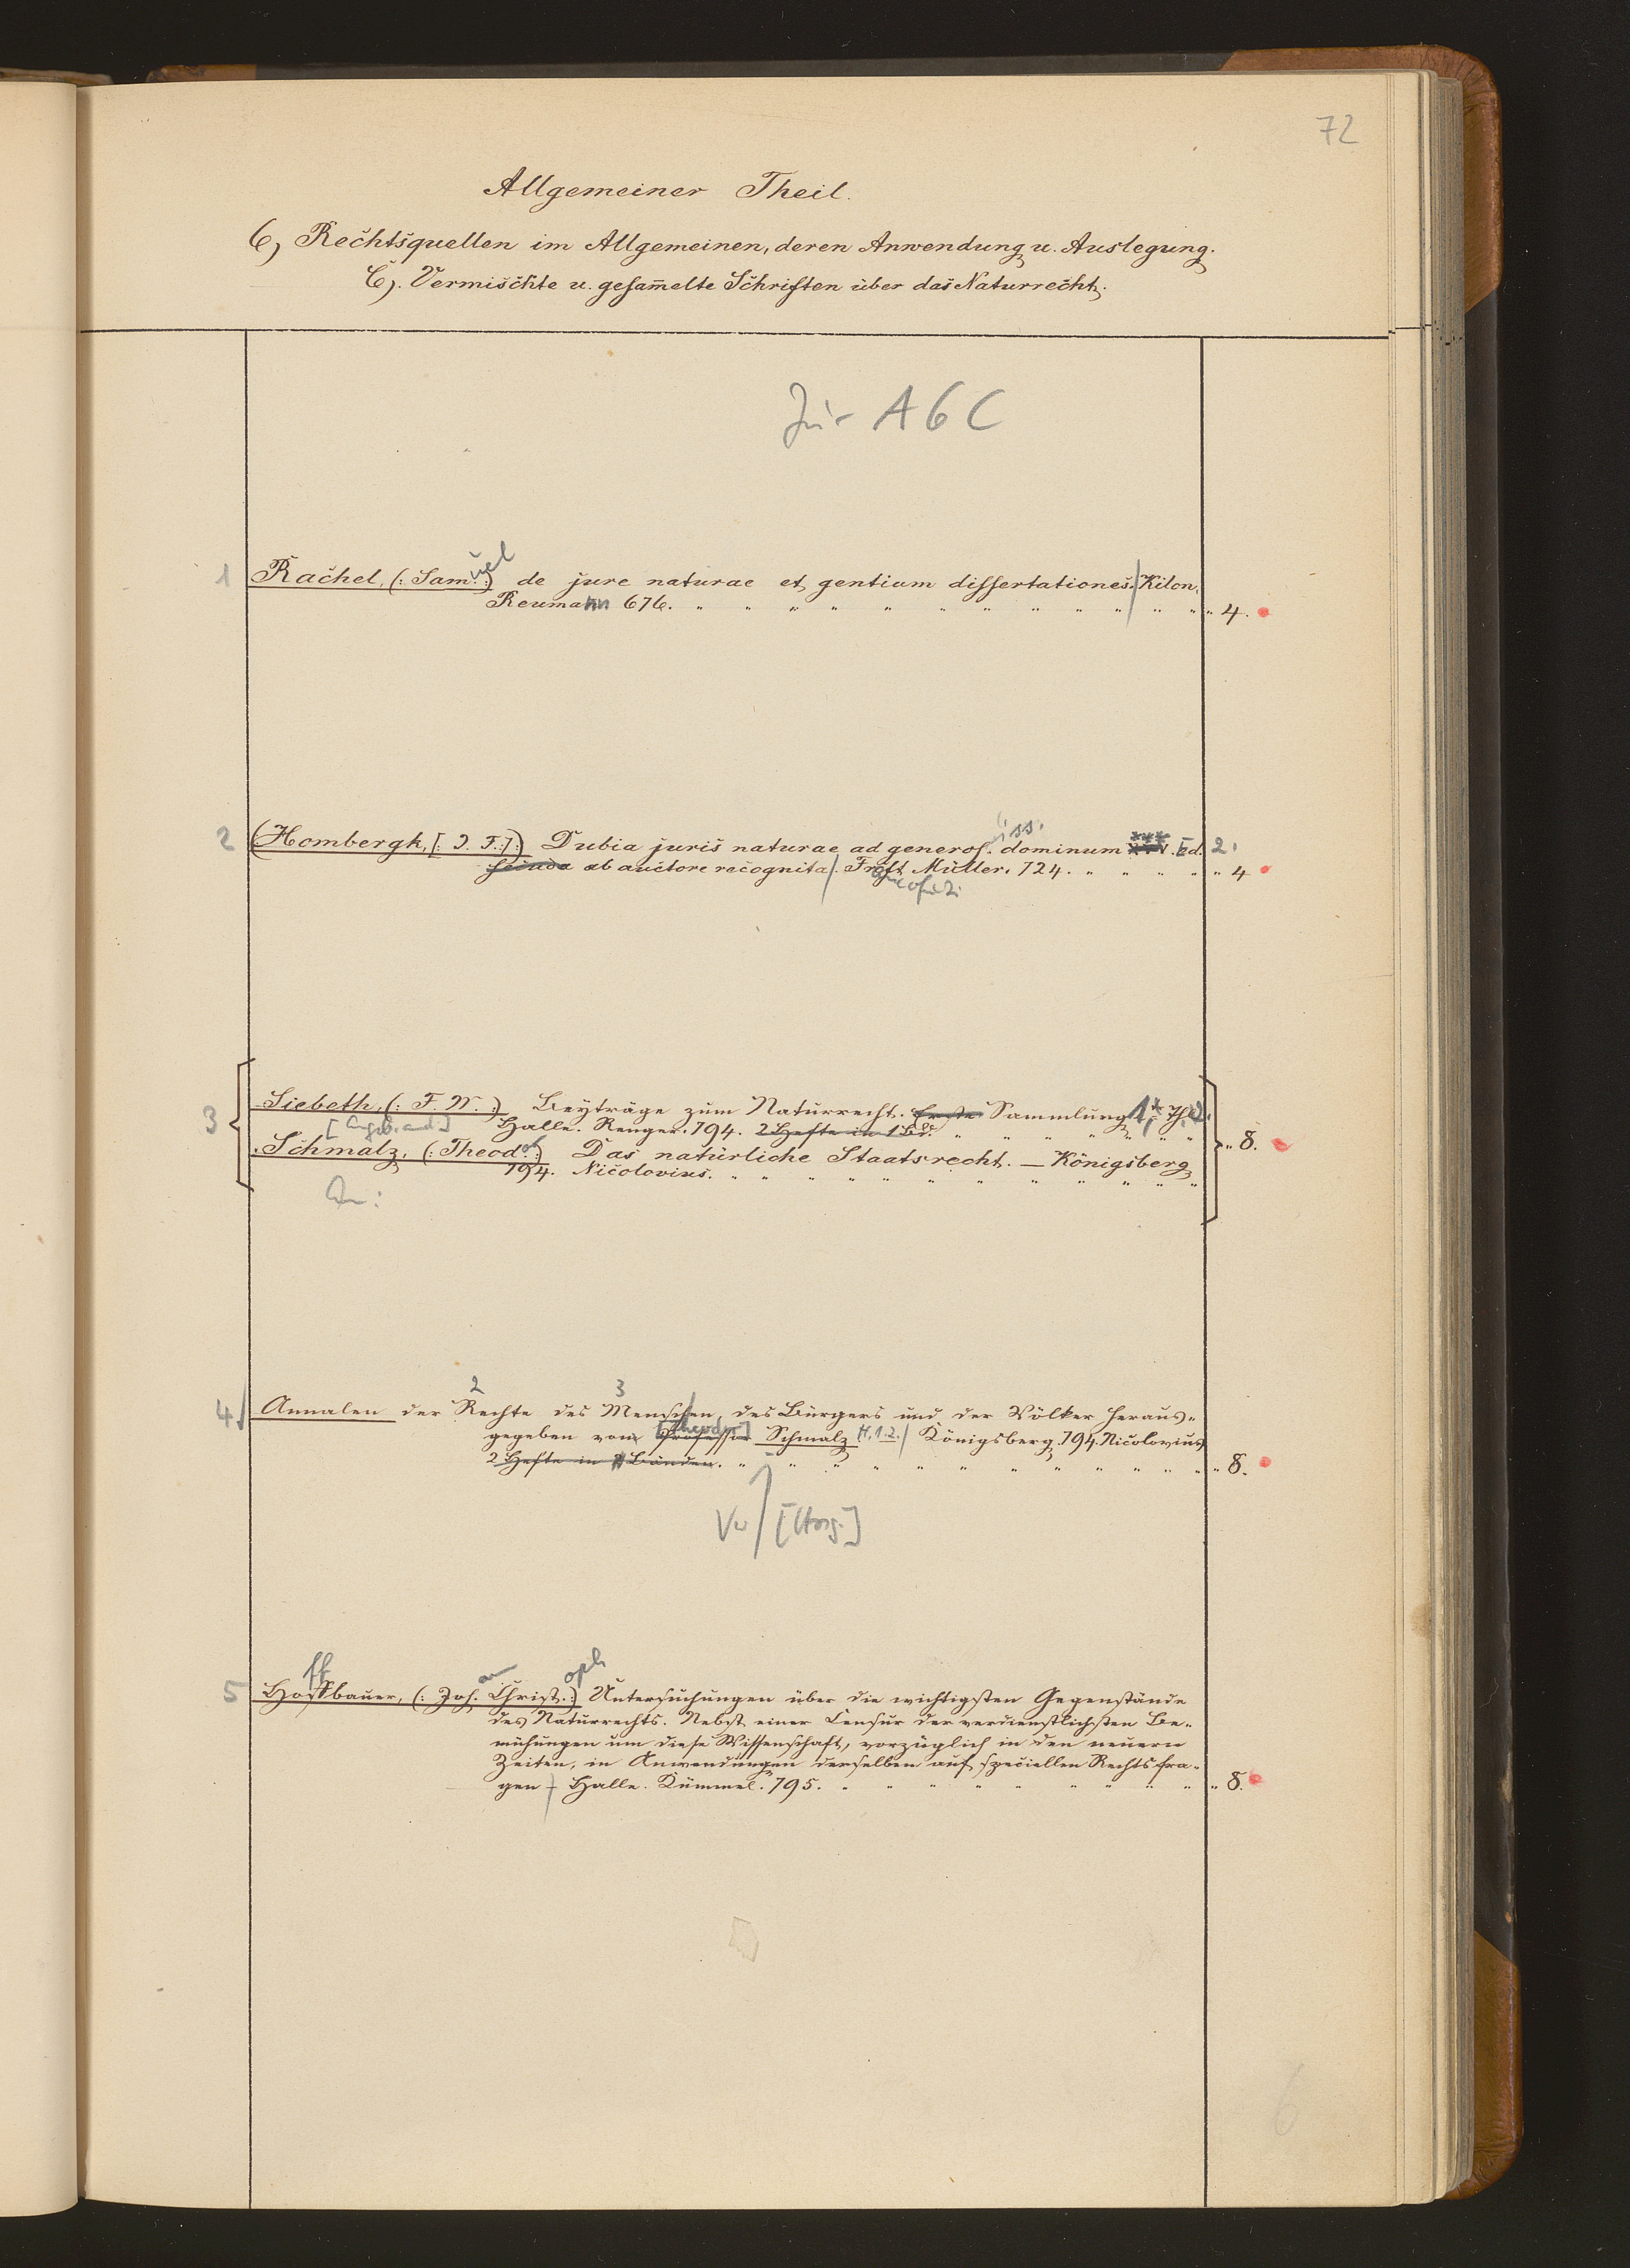 72
Allgemeiner Theil.
6, Rechtsquellen im Allgemeinen, deren Anwendung u. Auslegung.
C). Vermischte u. gesam̄elte Schriften über das Naturrecht.
Jur A 6 C
1 Rachel, (: Sam. uel :) de jure naturae et gentium dissertationes. Kilon.
Reumann 676. 4.
2 (Hombergk, [: J. F. :] :) Dubia juris naturae ad generos. iss. dominum *** Ed. 2.
secunda ab auctore recognita. Frcft. Müller. 724. 4
3 Siebeth, (: F. W. :) Beyträge zum Naturrecht. Erste Sammlung 1, Th. 2.
Halle. Renger. 794. 2 Hefte in 1 Bd.
Schmalz, (: Theod. :) Das natürliche Staatsrecht. — Königsberg
794. Nicolovius. 8.
An:
2 3
4 Annalen der Rechte des Menschen, des Bürgers und der Völker heraus-
gegeben von Professor [Theodor] Schmalz H. 1.2. Königsberg. 794. Nicolovius
2 Hefte in Bänden. 8.
Vw [Hrsg.]
ff oph
5 Hoffbauer, (: Joh. Christ. :) Untersuchungen über die wichtigsten Gegenstände
des Naturrechts. Nebst einer Censur der verdienstlichsten Be-
mühungen um diese Wissenschaft, vorzüglich in den neuern
Zeiten, in Anwendungen derselben auf speciellen Rechtsfra-
gen Halle. Kümmel. 795. 8.
6